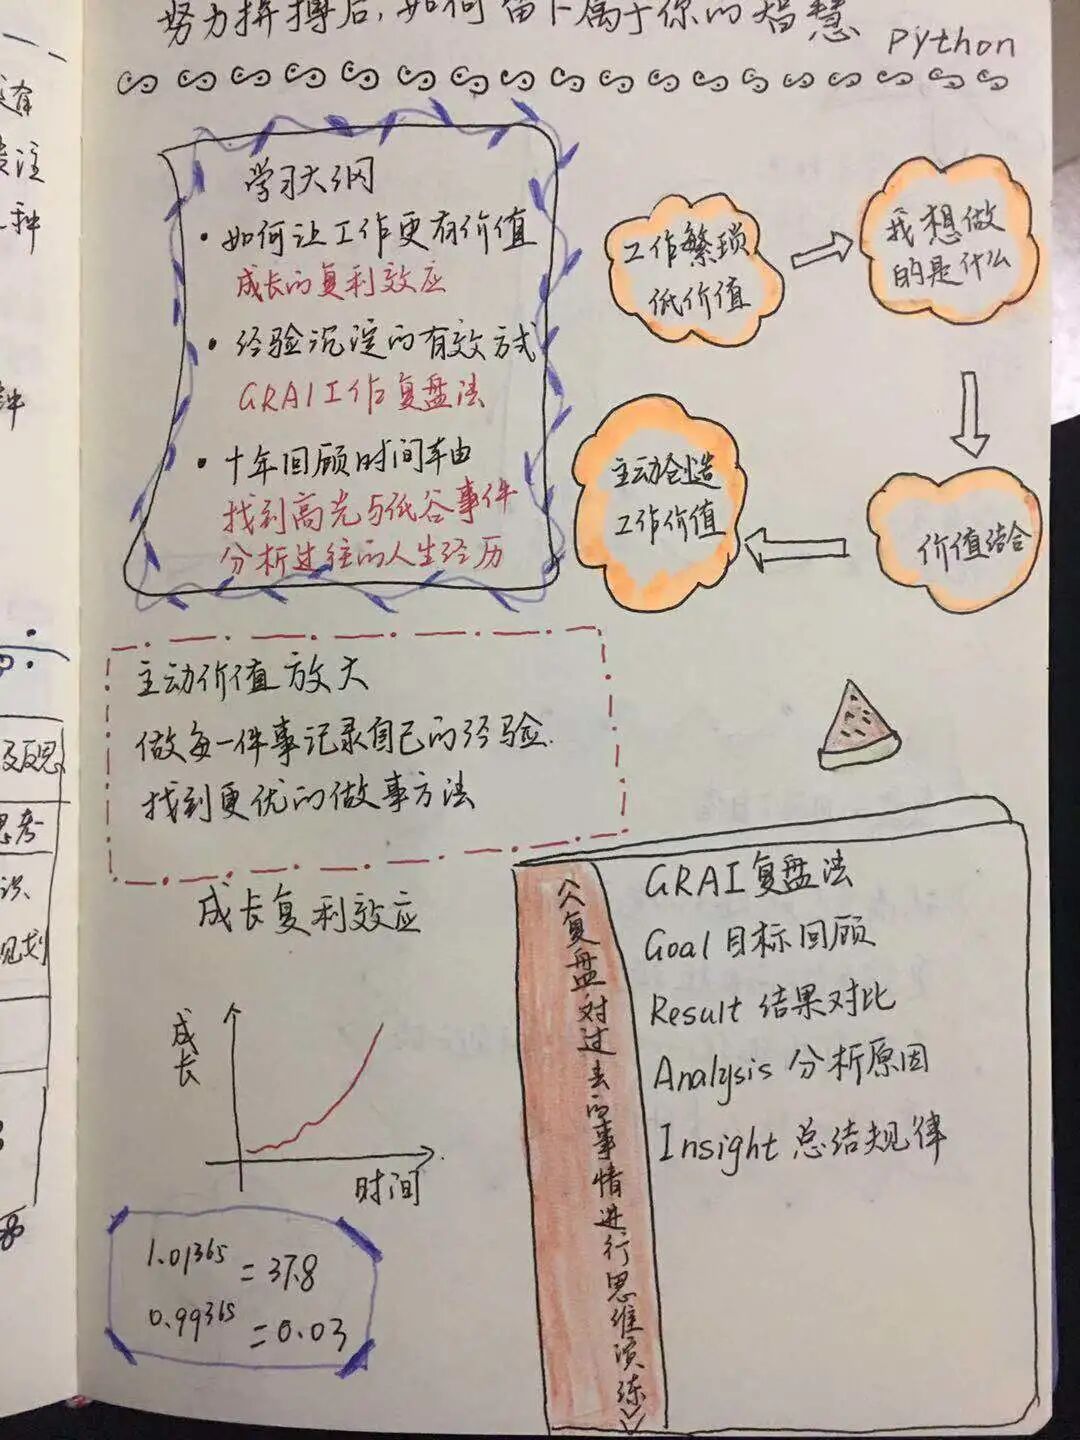 努力拼搏后,如何留下属于你的智慧
python
学习大纲
·如何让工作更有价值
成长的复利效应
·经验沉淀的有效方式
GRAI工作复盘法
·十年回顾时间轴
找到高光与低谷事件
分析过往的人生经历
工作繁琐
低价值
我想做
的是什么
价值结合
主动创造
工作价值
主动价值放大
做每一件事记录自己的经验.
找到更优的做事方法
成长复利效应
成长
时间
1.01365=37.8
0.99365=0.03
《复盘对过去的事情进行思维演练》
GRAI复盘法
Goal目标回顾
Result 结果对比
Analysis 分析原因
Insight 总结规律
注
一种
反思
思考
识
规划